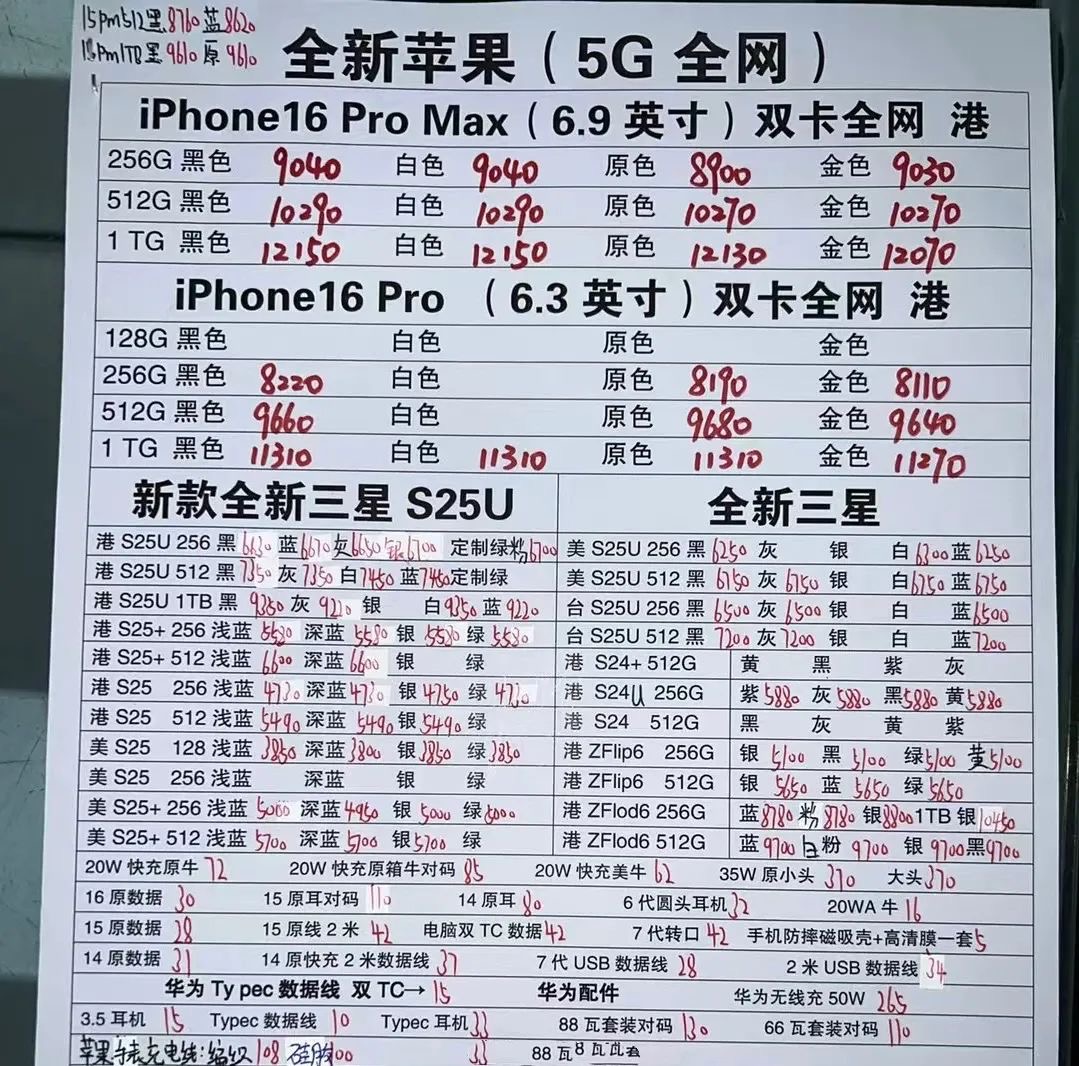 15pm512黑8760蓝8620
15Pm1TB黑9610原9610
全新苹果（5G 全网）
iPhone16 Pro Max（6.9 英寸）双卡全网 港
256G 黑色 9040 白色 9040 原色 8900 金色 9030
512G 黑色 10290 白色 10290 原色 10270 金色 10270
1 TG 黑色 12150 白色 12150 原色 12130 金色 12070
iPhone16 Pro （6.3 英寸）双卡全网 港
128G 黑色 白色 原色 金色
256G 黑色 8220 白色 原色 8190 金色 8110
512G 黑色 9660 白色 原色 9680 金色 9640
1 TG 黑色 11310 白色 11310 原色 11310 金色 11270
新款全新三星 S25U
港 S25U 256 黑 6630 蓝 6670 灰 6650 银 6700 定制绿粉 6700
港 S25U 512 黑 7350 灰 7350 白 7450 蓝 7450 定制绿
港 S25U 1TB 黑 9350 灰 9220 银 白 9350 蓝 9220
港 S25+ 256 浅蓝 5580 深蓝 5580 银 5580 绿 5580
港 S25+ 512 浅蓝 6600 深蓝 6600 银 绿
港 S25 256 浅蓝 4730 深蓝 4730 银 4750 绿 4730
港 S25 512 浅蓝 5490 深蓝 5490 银 5490 绿
美 S25 128 浅蓝 3850 深蓝 3800 银 3850 绿 3850
美 S25 256 浅蓝 深蓝 银 绿
美 S25+ 256 浅蓝 5000 深蓝 4950 银 5000 绿 5000
美 S25+ 512 浅蓝 5700 深蓝 5700 银 5700 绿
全新三星
美 S25U 256 黑 6250 灰 银 白 6300 蓝 6250
美 S25U 512 黑 6750 灰 6750 银 白 6750 蓝 6750
台 S25U 256 黑 6500 灰 6500 银 白 蓝 6500
台 S25U 512 黑 7200 灰 7200 银 白 蓝 7200
港 S24+ 512G 黄 黑 紫 灰
港 S24U 256G 紫 5880 灰 5880 黑 5880 黄 5880
港 S24 512G 黑 灰 黄 紫
港 ZFlip6 256G 银 5100 黑 5100 绿 5100 黄 5100
港 ZFlip6 512G 银 5650 蓝 5650 绿 5650
港 ZFlod6 256G 蓝 8780 粉 8780 银 8800 1TB 银 10450
港 ZFlod6 512G 蓝 9700 白粉 9700 银 9700 黑 9700
20W 快充原牛 72 20W 快充原箱牛对码 85 20W 快充美牛 62 35W 原小头 370 大头 370
16 原数据 30 15 原耳对码 110 14 原耳 80 6 代圆头耳机 32 20WA 牛 16
15 原数据 28 15 原线 2 米 42 电脑双 TC 数据 42 7 代转口 42 手机防摔磁吸壳+高清膜一套 5
14 原数据 31 14 原快充 2 米数据线 37 7 代 USB 数据线 28 2 米 USB 数据线 34
华为 Ty pec 数据线 双 TC→ 15 华为配件 华为无线充 50W 265
3.5 耳机 15 Typec 数据线 10 Typec 耳机 33 88 瓦套装对码 130 66 瓦套装对码 110
苹果手表充电线:编织 108 硅胶 100 33 88 瓦